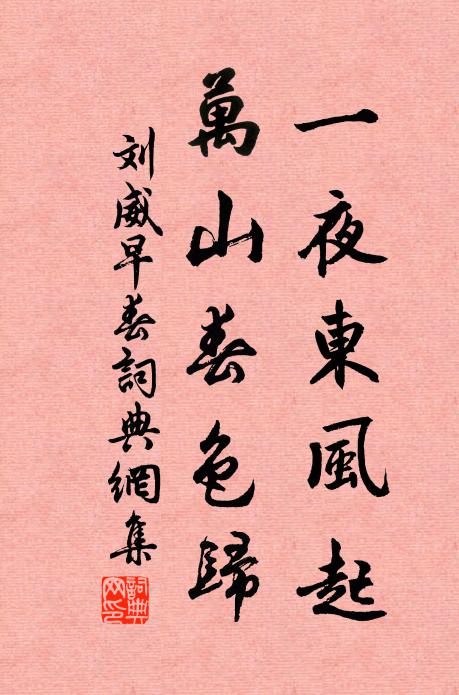 一夜東風起
萬山春色歸
刘威早春詞典網集
詞典网印